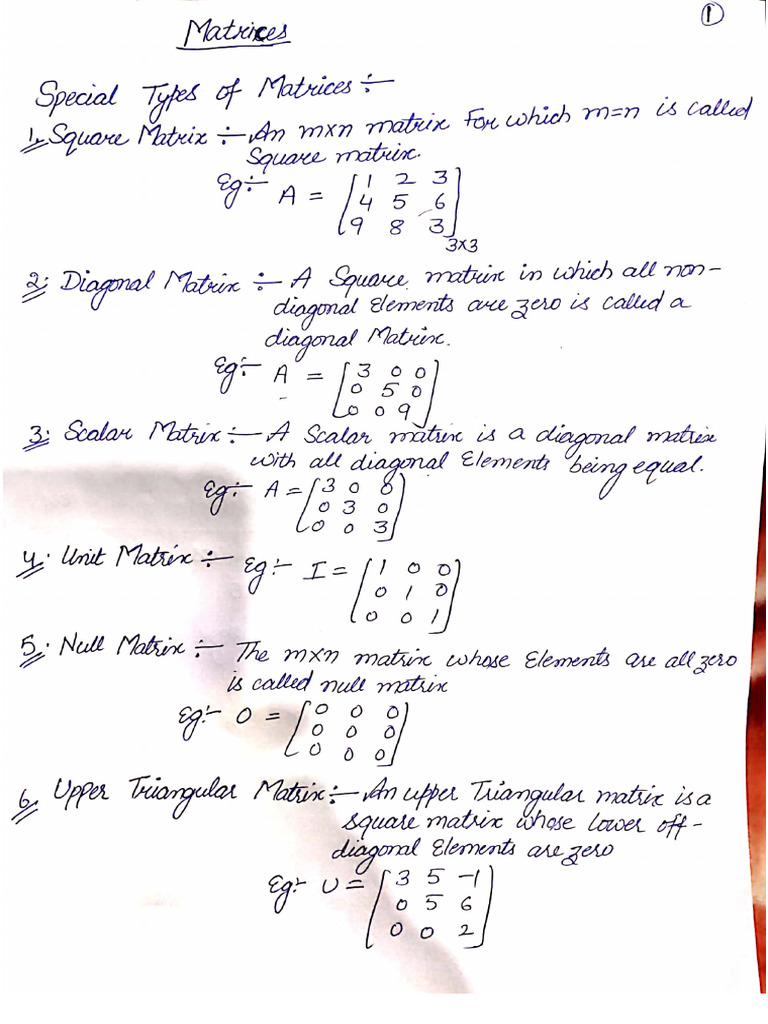 ①
Matrices
Special Types of Matrices :-
1. Square Matrix :- An m×n matrix For which m=n is called
Square matrix.
Eg:- A = [1 2 3
4 5 6
9 8 3]3×3
2. Diagonal Matrix :- A Square matrix in which all non-
diagonal Elements are zero is called a
diagonal Matrix.
Eg:- A = [3 0 0
0 5 0
0 0 9]
3. Scalar Matrix :- A Scalar matrix is a diagonal matrix
with all diagonal Elements being equal.
Eg:- A = [3 0 0
0 3 0
0 0 3]
4. Unit Matrix :- Eg:- I = [1 0 0
0 1 0
0 0 1]
5. Null Matrix :- The m×n matrix whose Elements are all zero
is called null matrix
Eg:- O = [0 0 0
0 0 0
0 0 0]
6. Upper Triangular Matrix :- An upper Triangular matrix is a
square matrix whose lower off-
diagonal Elements are zero
Eg:- U = [3 5 -1
0 5 6
0 0 2]